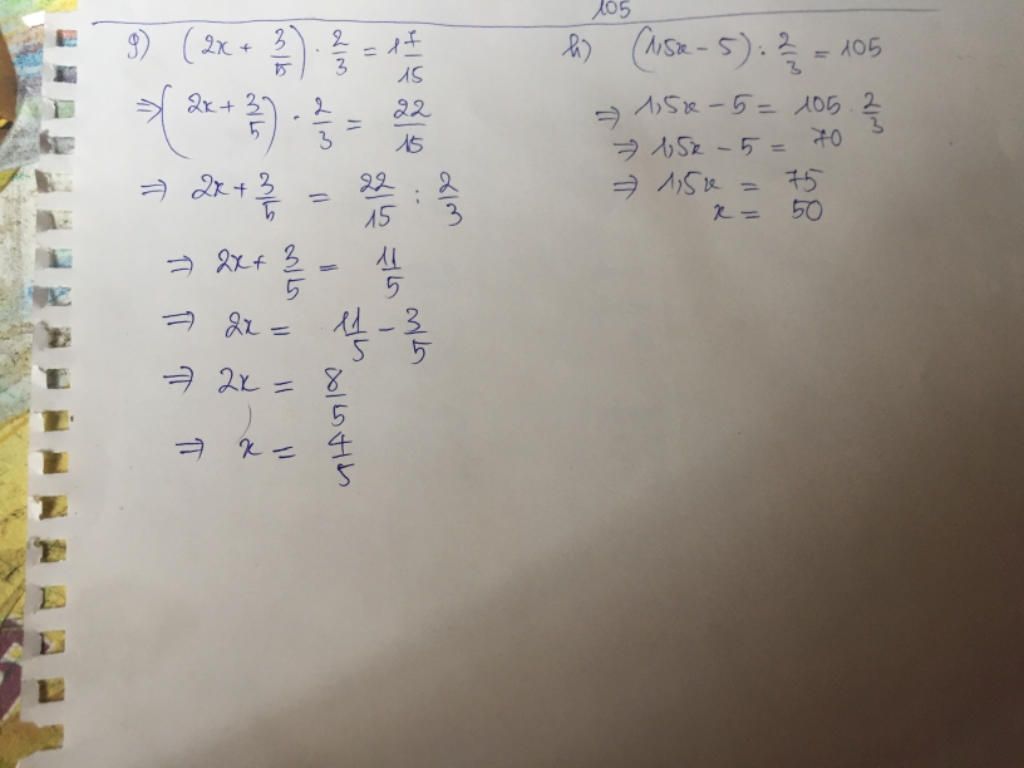 105
g) (2x + 3/5) · 2/3 = 1 7/15
⇒ (2x + 3/5) · 2/3 = 22/15
⇒ 2x + 3/5 = 22/15 : 2/3
⇒ 2x + 3/5 = 11/5
⇒ 2x = 11/5 − 3/5
⇒ 2x = 8/5
⇒ x = 4/5
h) (1,5x − 5) : 2/3 = 105
⇒ 1,5x − 5 = 105 · 2/3
⇒ 1,5x − 5 = 70
⇒ 1,5x = 75
x = 50